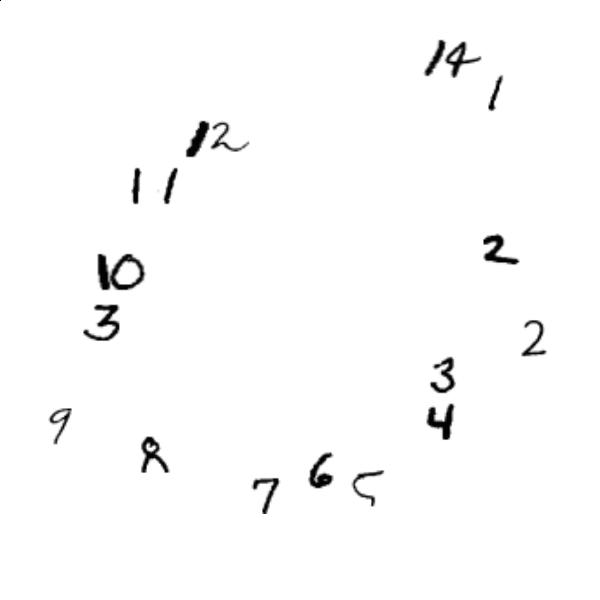 14
1
12
11
2
10
3
2
3
4
9
8
6
7
5